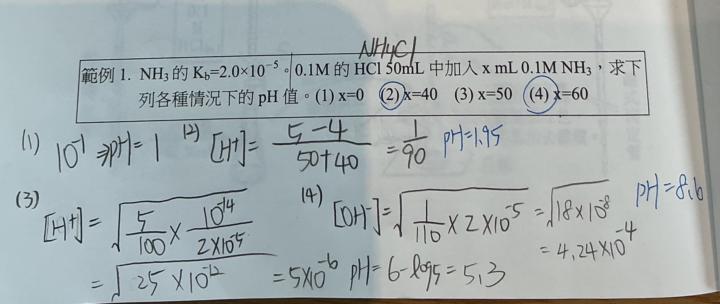 NH4Cl
範例 1. NH₃ 的 Kb=2.0×10⁻⁵。0.1M 的 HCl 50mL 中加入 x mL 0.1M NH₃,求下
列各種情況下的 pH 值。(1) x=0 (2) x=40 (3) x=50 (4) x=60
(1) 10⁻¹ ⇒ pH=1
(2) [H⁺]= (5-4)/(50+40) = 1/90 pH=1.95
(3) [H⁺]= √(5/100 × 10⁻¹⁴/(2×10⁻⁵))
= √(25×10⁻¹²) = 5×10⁻⁶ pH=6-log5=5.3
(4) [OH⁻]= √(1/110 × 2×10⁻⁵) = √(18×10⁻⁸) pH=8.6
= 4.24×10⁻⁴